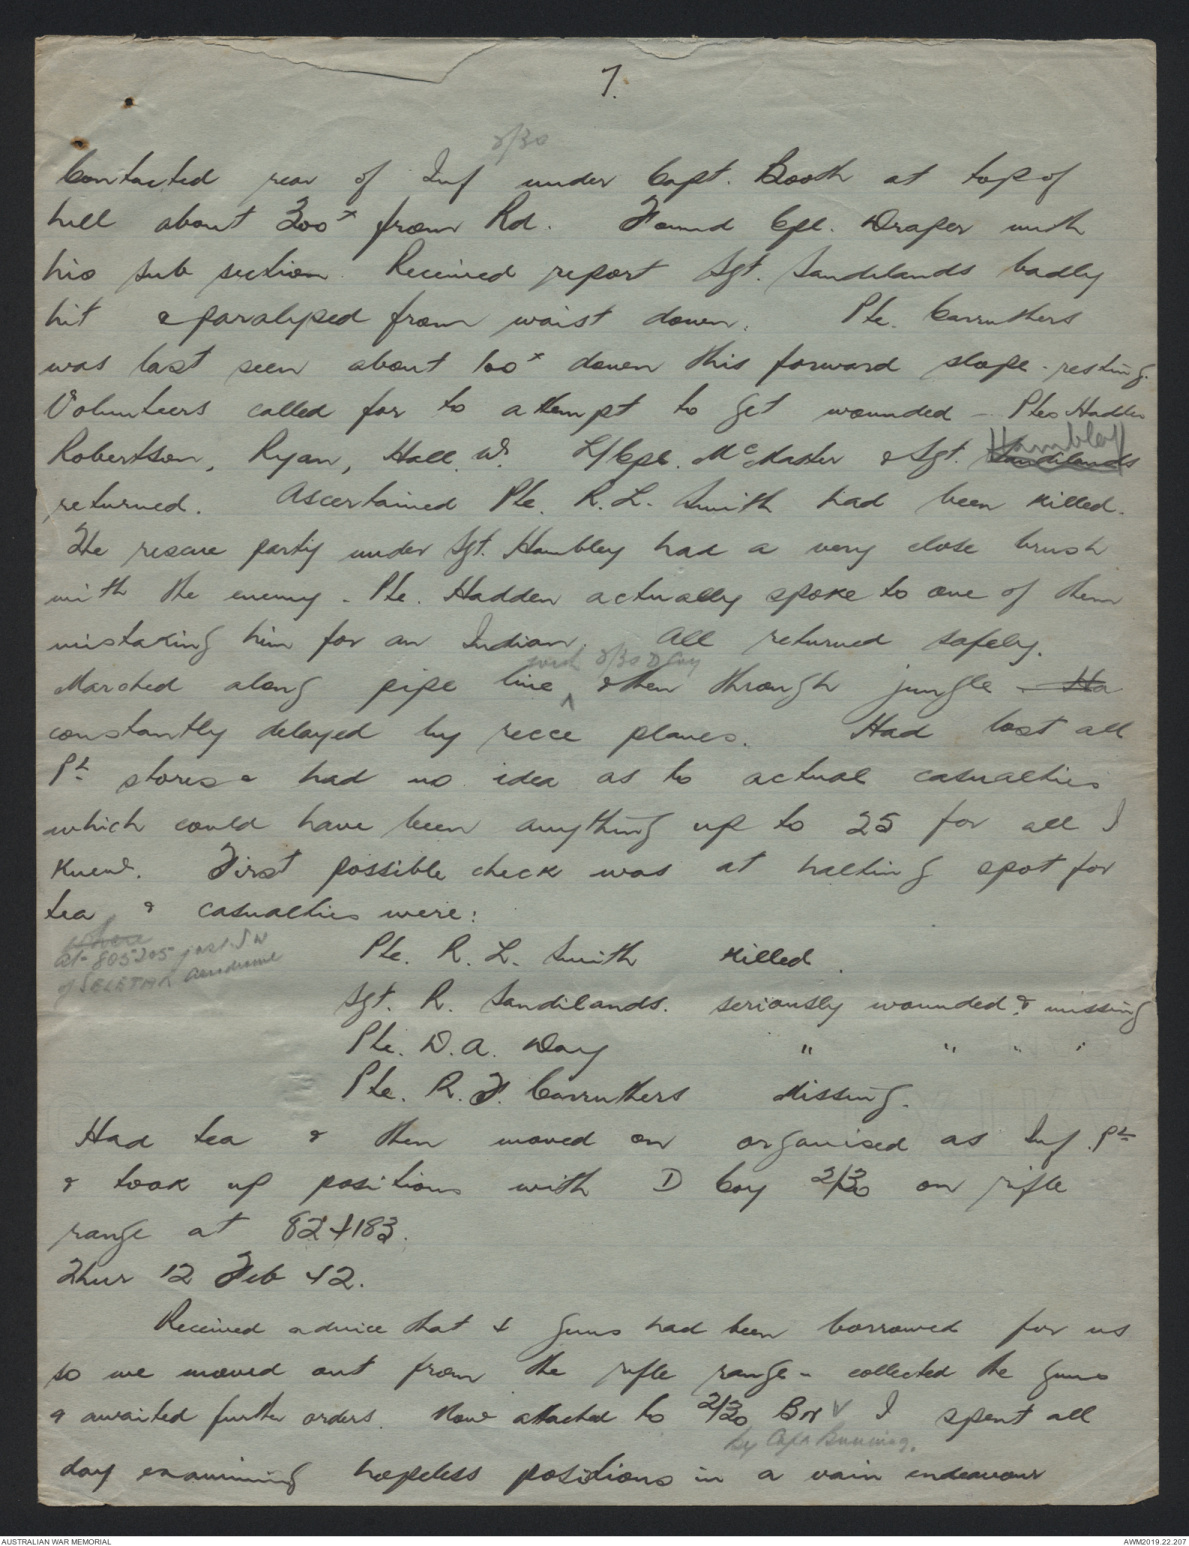 7.
2/30
Contacted rear of Inf under Capt. Booth at top of
hill about 300x from Rd. Found Cpl. Draper with
his sub section. Received report Sgt. Sandilands badly
hit & paralysed from waist down. Pte. Carruthers
was last seen about 100x down this forward slope - resting.
Volunteers called for to attempt to get wounded - Ptes Hadden
Robertson, Ryan, Hall. W. L/Cpl. McMaster & Sgt. Sandilands Hambley
returned. Ascertained Pte. R. L. Smith had been killed.
The rescue party under Sgt. Hambley had a very close brush
with the enemy - Pte. Hadden actually spoke to one of them
mistaking him for an Indian. All returned safely.
with 2/30 D Coy
Marched along pipe line ^ & then through jungle - Ha
constantly delayed by recce planes. Had lost all
Pl stores & had no idea as to actual casualties
which could have been anything up to 25 for all I
knew. First possible check was at halting spot for
tea & casualties were:
where
at 805205 just SW
of SELETAR aerodrome
Pte. R. L. Smith killed.
Sgt. R. Sandilands. seriously wounded & missing
Pte. D. A. Day " " " "
Pte. R. F. Carruthers Missing.
Had tea & then moved on organised as Inf. Pl
& took up positions with D Coy 2/30 on rifle
range at 824183.
Thur 12 Feb 42.
Received advice that 4 guns had been borrowed for us
so we moved out from the rifle range - collected the guns
& awaited further orders. Now attached to 2/30 Bn V I spent all
by Capt Bunning.
day examining hopeless positions in a vain endeavour
AUSTRALIAN WAR MEMORIAL
AWM2019.22.207